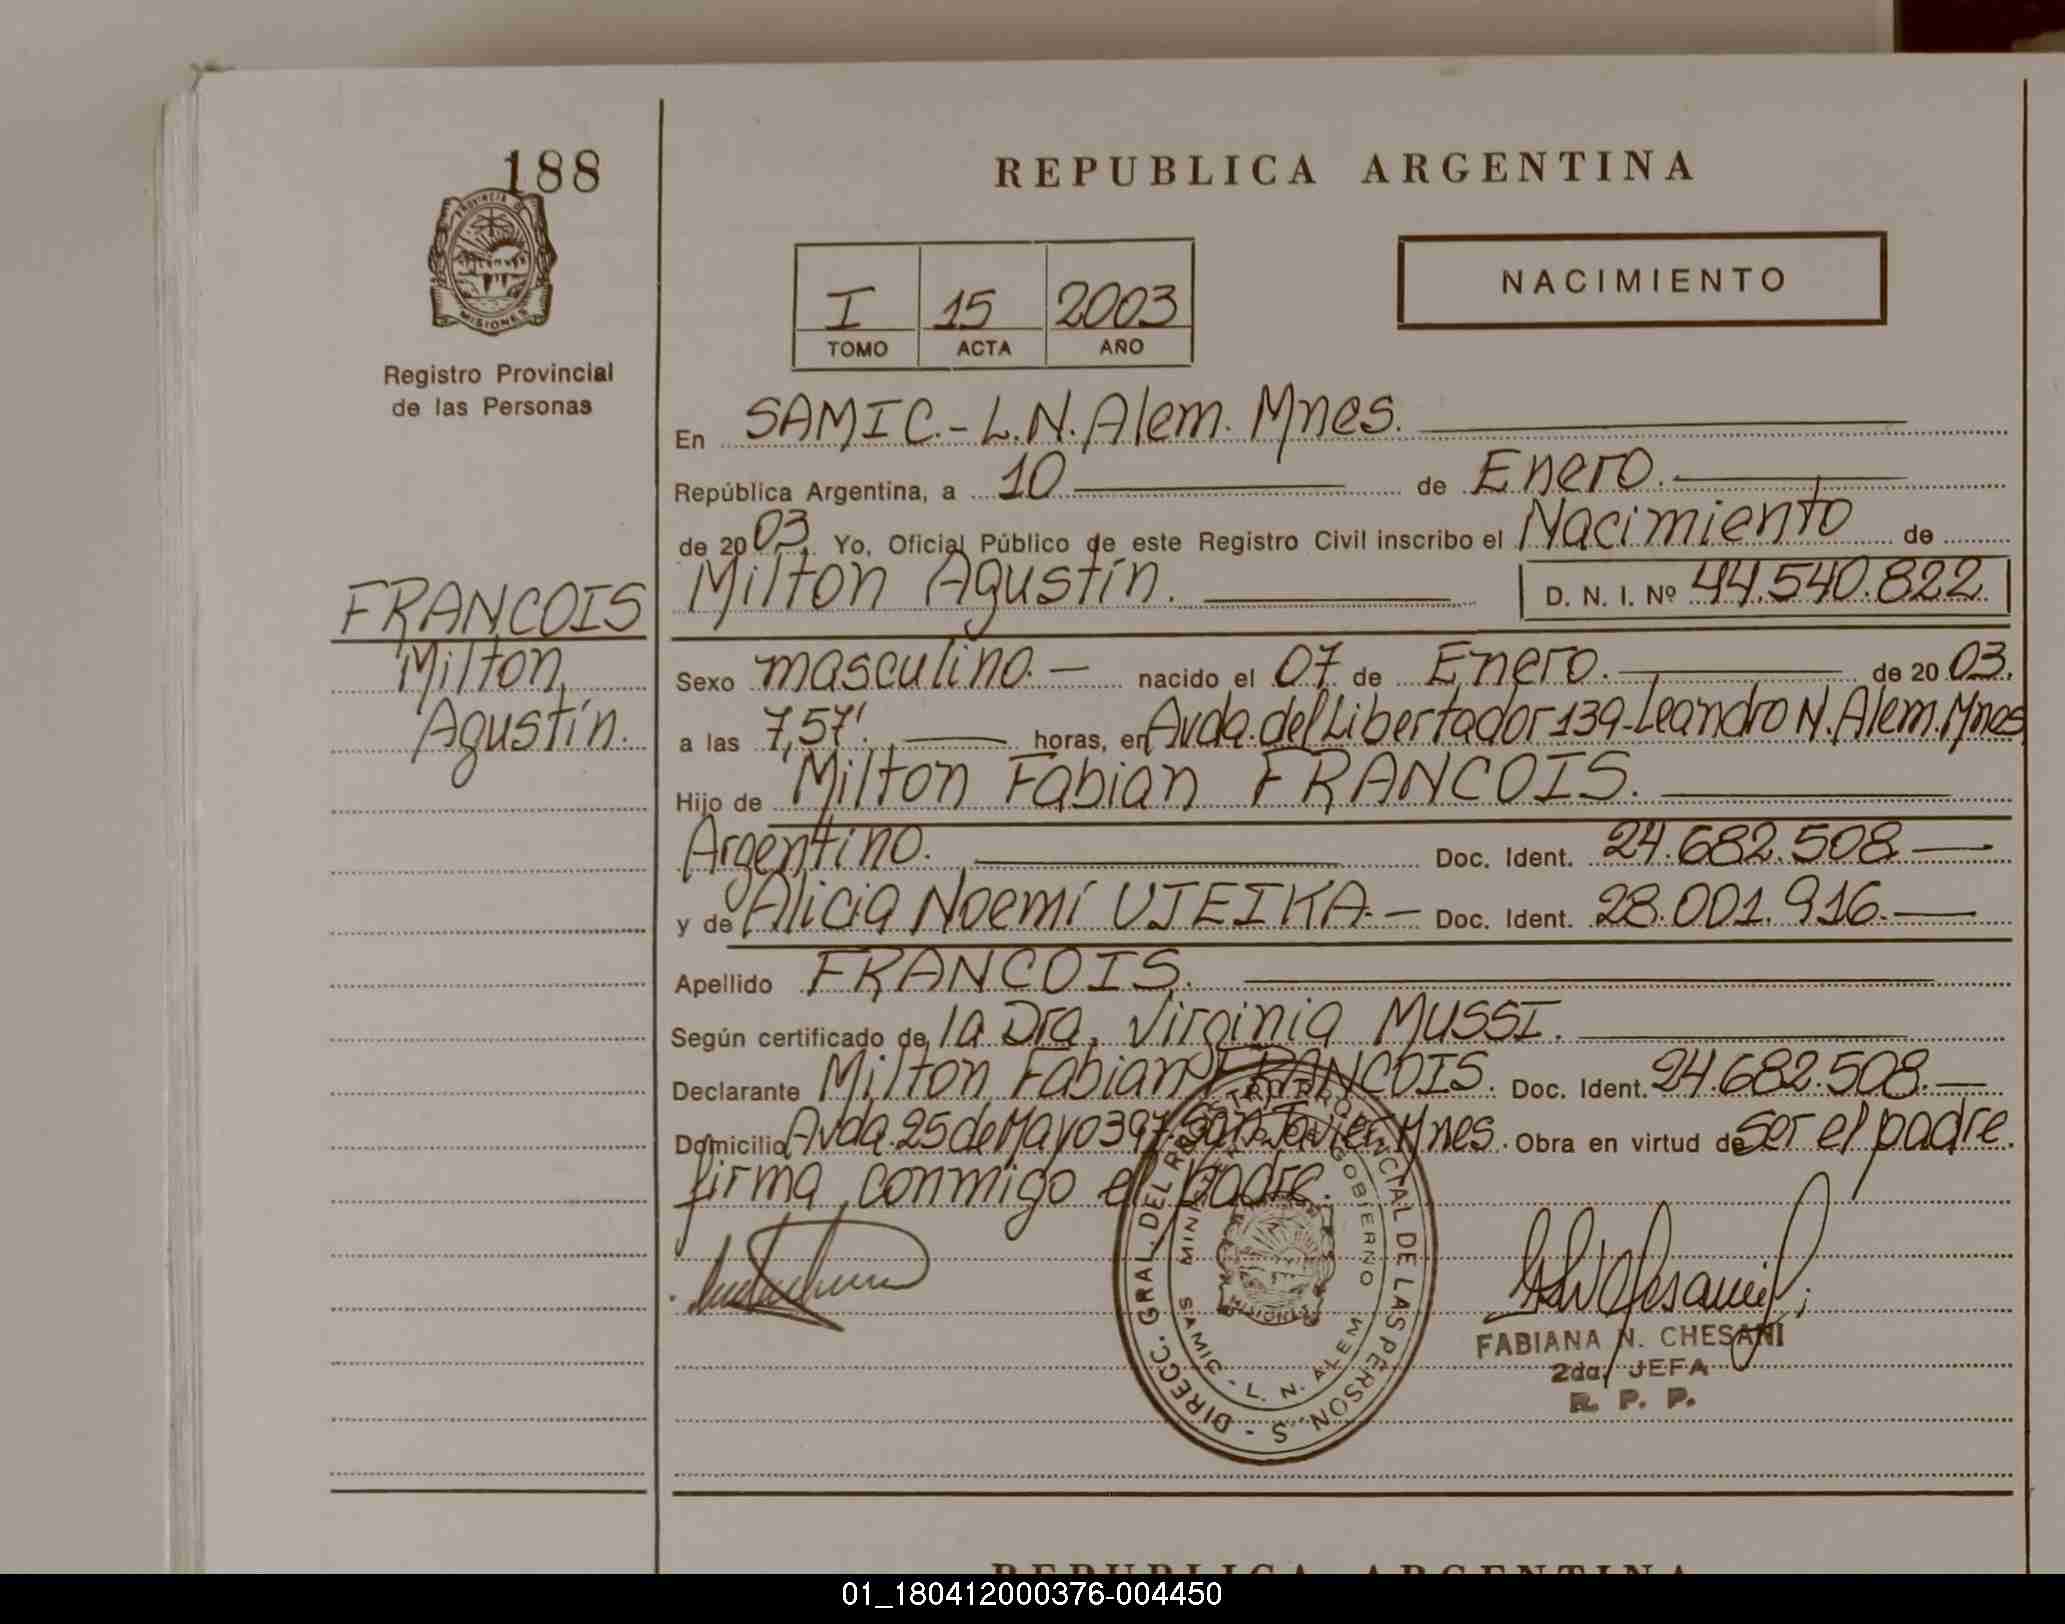 188
PROVINCIA DE
MISIONES
Registro Provincial
de las Personas
REPUBLICA ARGENTINA
NACIMIENTO
I 15 2003
TOMO ACTA AÑO
En SAMIC.- L.N. Alem. Mnes.
República Argentina, a 10 de Enero.
de 2003. Yo, Oficial Público de este Registro Civil inscribo el Nacimiento de
FRANCOIS
Milton
Agustín.
Milton Agustín. D. N. I. Nº 44.540.822
Sexo masculino.- nacido el 07 de Enero. de 2003.
a las 7,57'. horas, en Avda. del Libertador 139-Leandro N. Alem. Mnes
Hijo de Milton Fabian FRANCOIS.
Argentino. Doc. Ident. 24.682.508
y de Alicia Noemí UJEIKA.- Doc. Ident. 28.001.916.
Apellido FRANCOIS.
Según certificado de la Dra. Virginia MUSSI.
Declarante Milton Fabian FRANCOIS. Doc. Ident. 24.682.508.
Domicilio Avda. 25 de Mayo 397. San Javier Mnes. Obra en virtud de ser el padre.
firma conmigo el padre.
DIRECC. GRAL. DEL REGISTRO PROVINCIAL DE LAS PERSONAS
MINISTERIO DE GOBIERNO
MISIONES
SAMIC - L. N. ALEM
FABIANA N. CHESANI
2da. JEFA
R. P. P.
REPUBLICA ARGENTINA
01_180412000376-004450